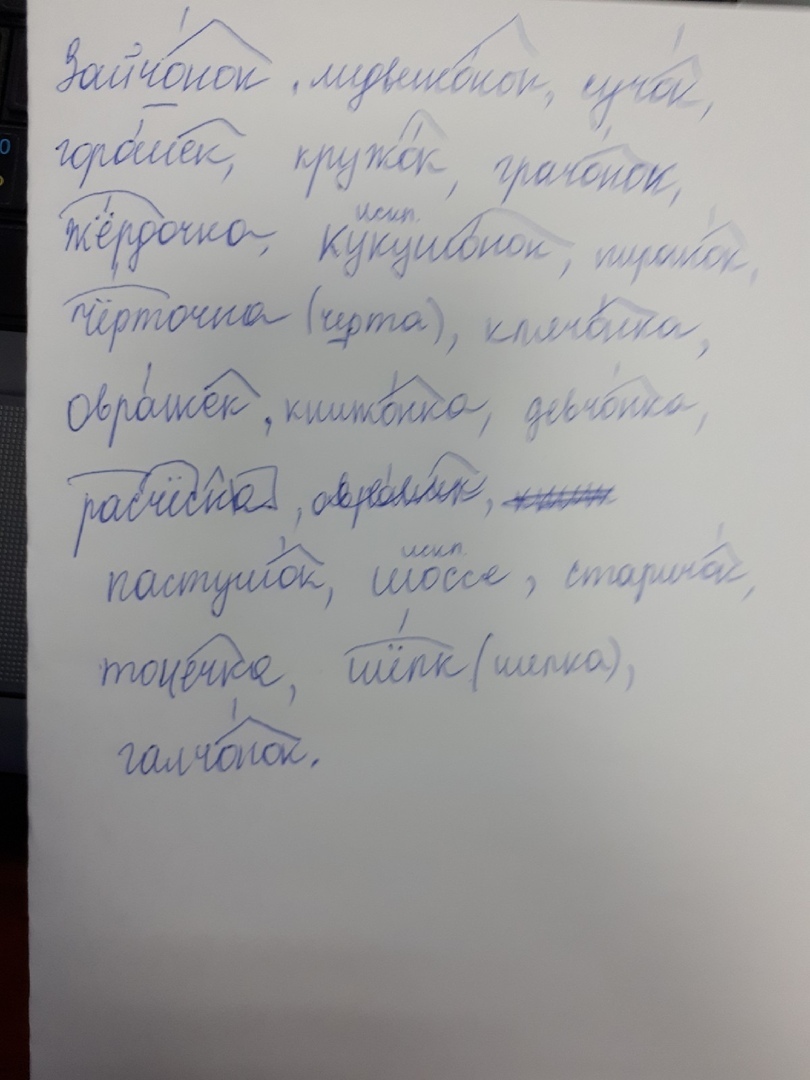 Зайчонок, медвежонок, сучок,
горошек, кружок, грачонок,
жёрдочка, искл. Кукушонок, пирожок,
чёрточка (черта), клячонка,
Овражек, книжонка, девчонка,
расчёска,
пастушок, искл. шоссе, старичок,
точечка, шёлк (шелка),
галчонок.